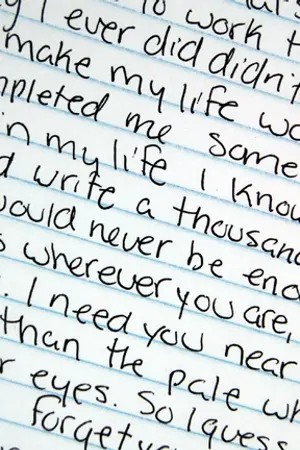 I ever did didn't
make my life wo
mpleted me some
in my life I know
d write a thousand
would never be eno
s wherever you are,
. I need you near
than the pale wh
r eyes. So I guess
forget yo